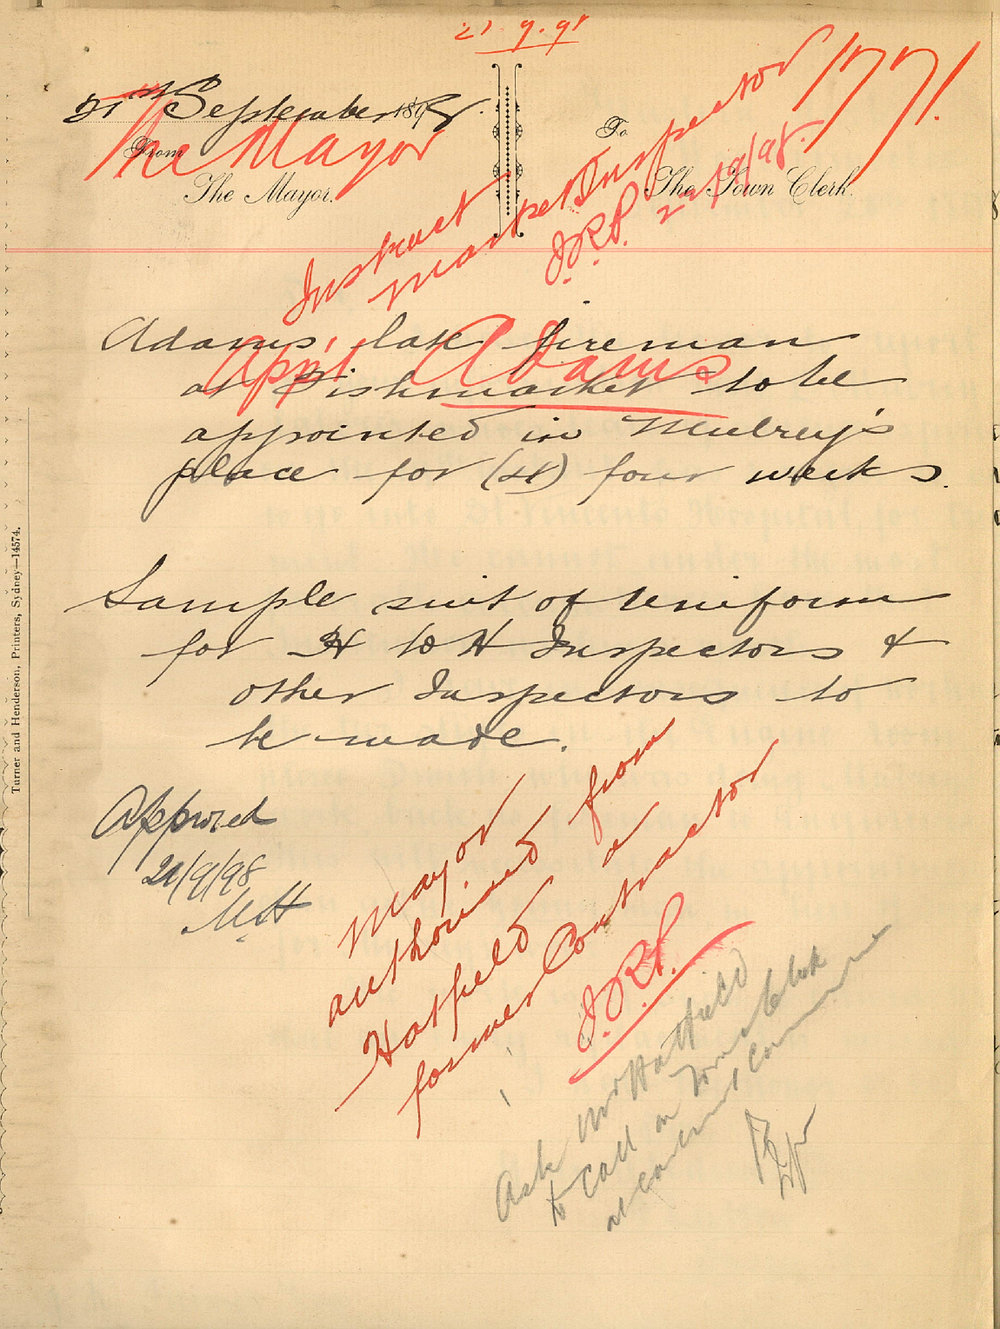 21.9.98
1771.
21st September 1898.
The Mayor
From
The Mayor.
To
The Town Clerk.
Instruct
Market Inspector
J.R.P. 22/9/98.
App't Adams
Adams, late fireman
at Fishmarket to be
appointed in Mulrey's
place for (4) four weeks.
Sample suit of Uniform
for H to H Inspectors &
other Inspectors to
be made.
Approved
21/9/98
M.H
Mayor
authorised from
Hatfield a
former Contractor
J.R.P.
Ask Mr Hatfield
to call on Town Clerk
at
Turner and Henderson, Printers, Sydney—14574.